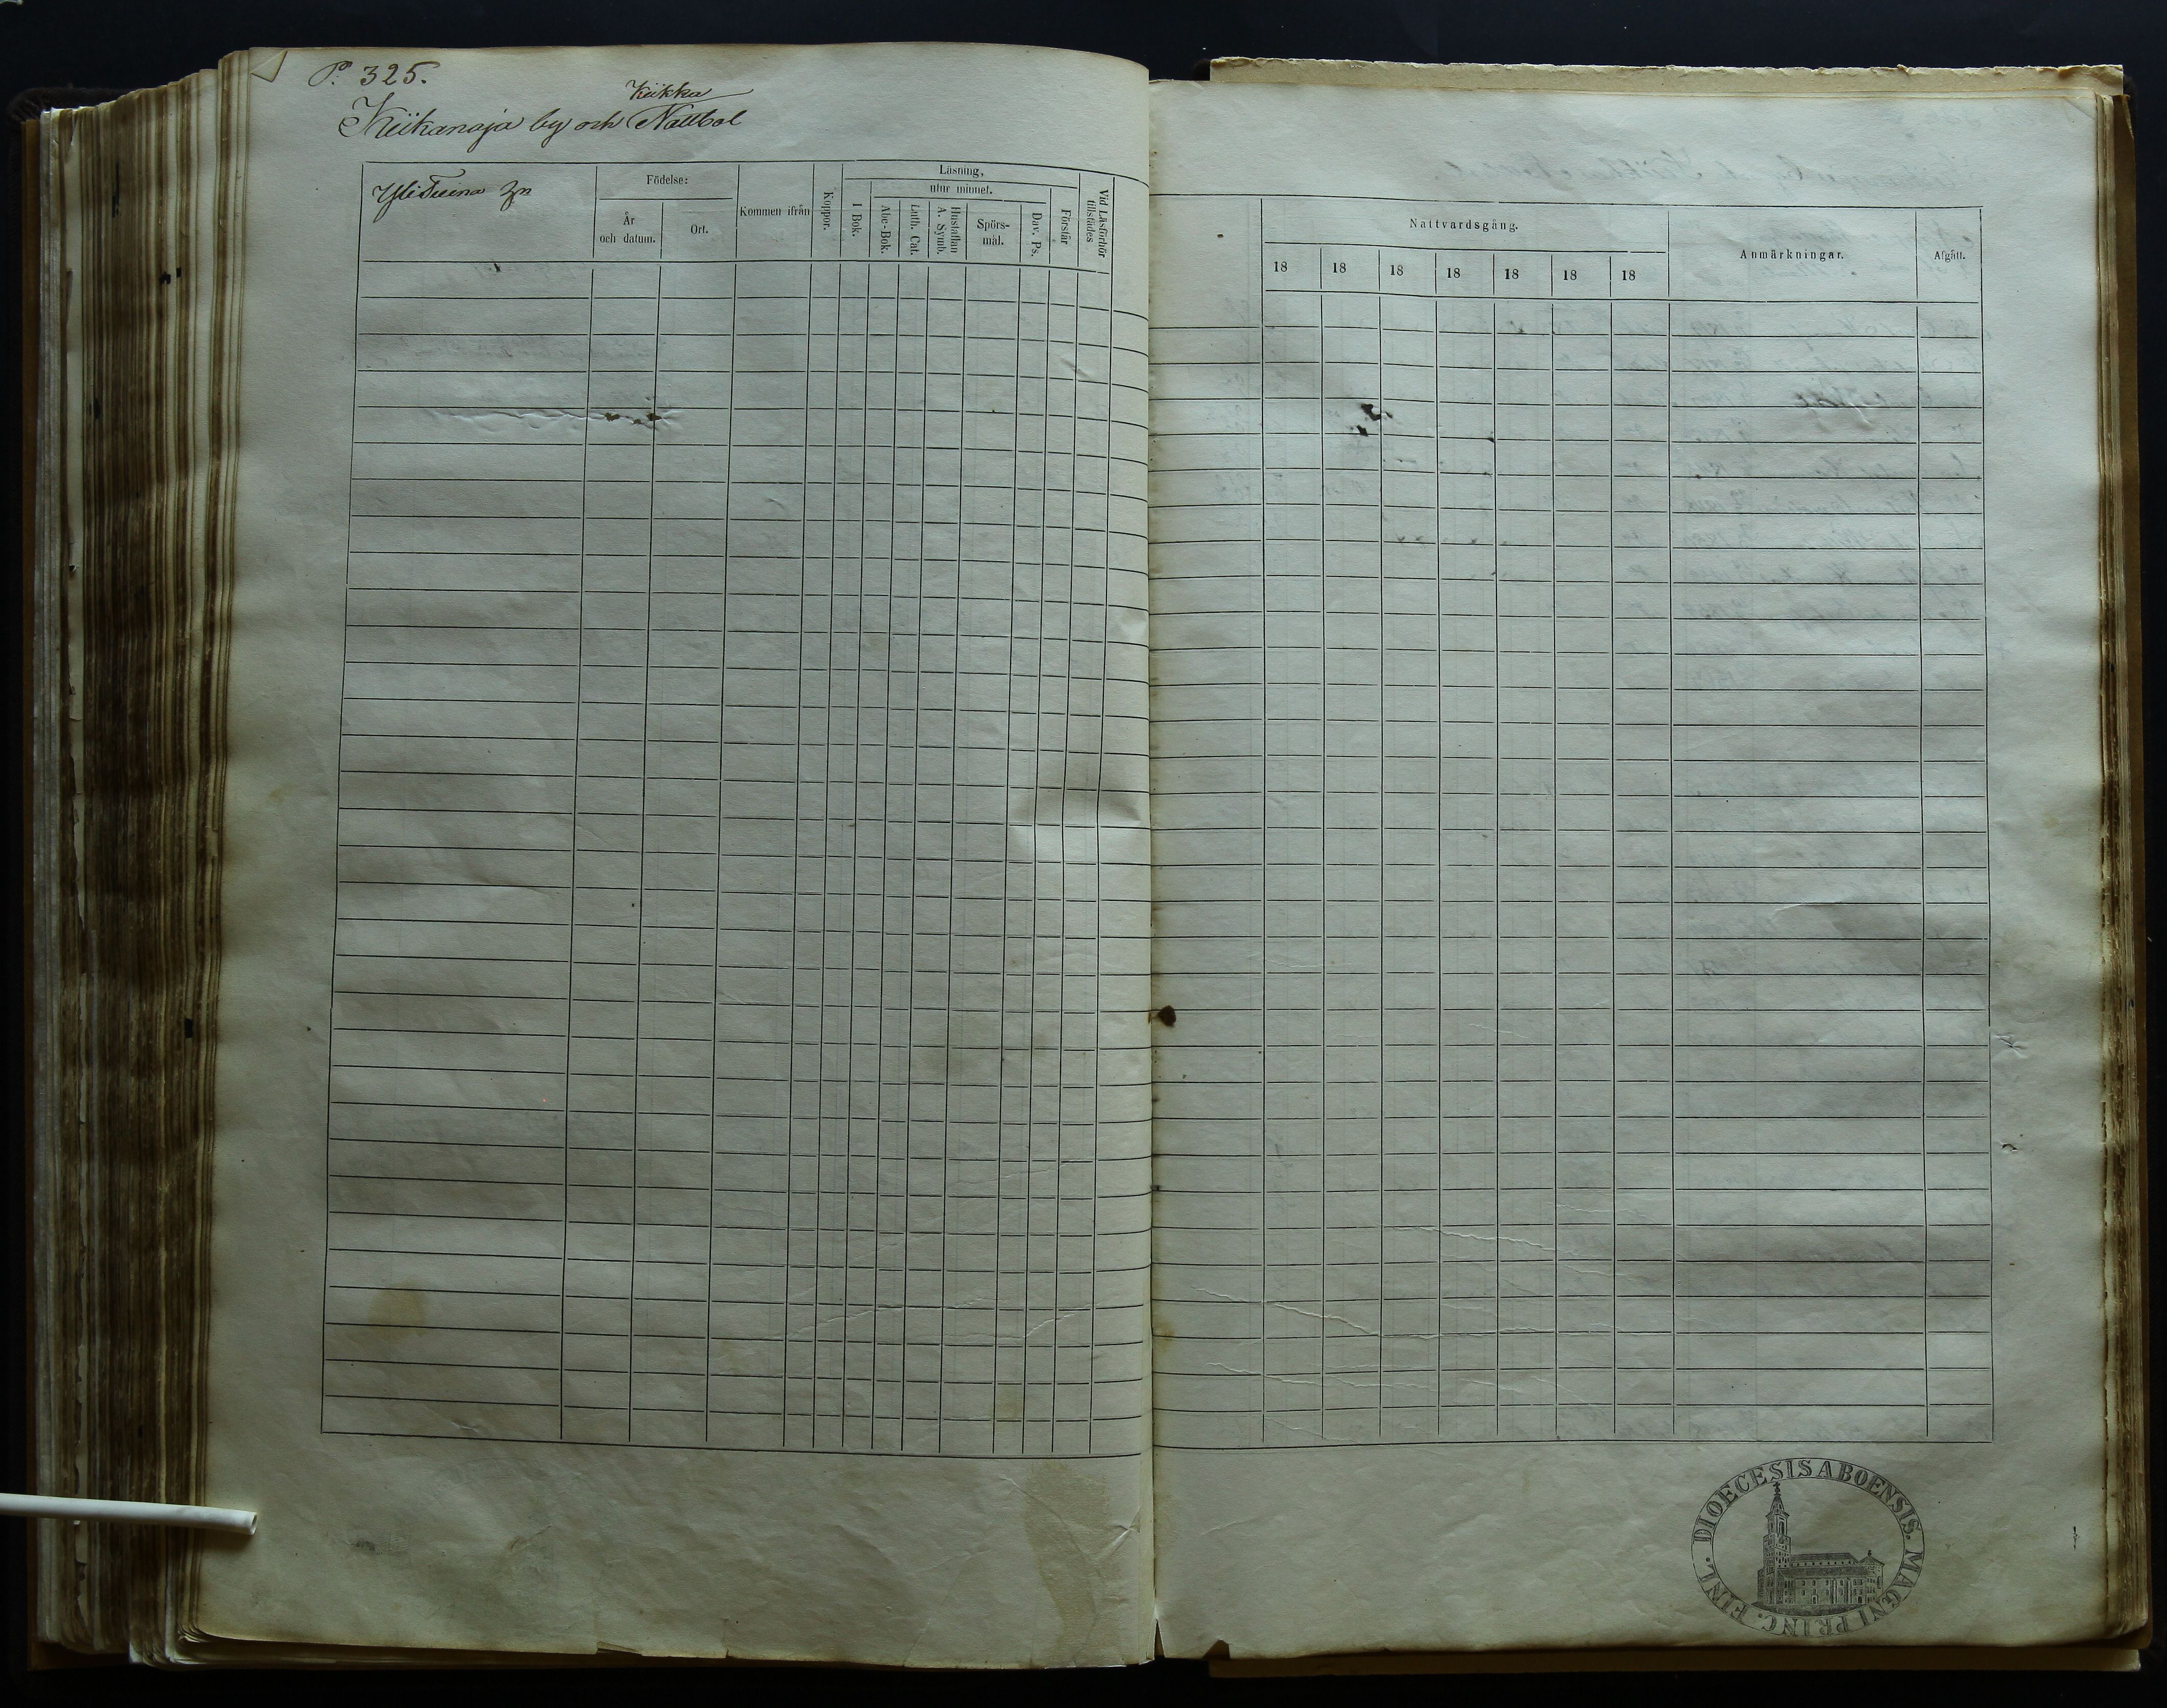 P. 325.
Kiikka
Kiikanoja by och Nattbol
YliTuena
Födelse:
År
och datum.
Ort.
Kommen ifrån
Koppor.
Läsning,
utur minnet.
I Bok.
Abc-Bok.
Luth. Cat.
Hustaflan
A. Symb.
Spörs-
mål.
Dav. Ps.
Förstår
Vid Läsförhör
tillstädes
Nattvardsgång.
18 18 18 18 18 18 18
Anmärkningar.
Afgått.
DIOECESIS ABOENSIS. MAGNI PRINC. FINL.